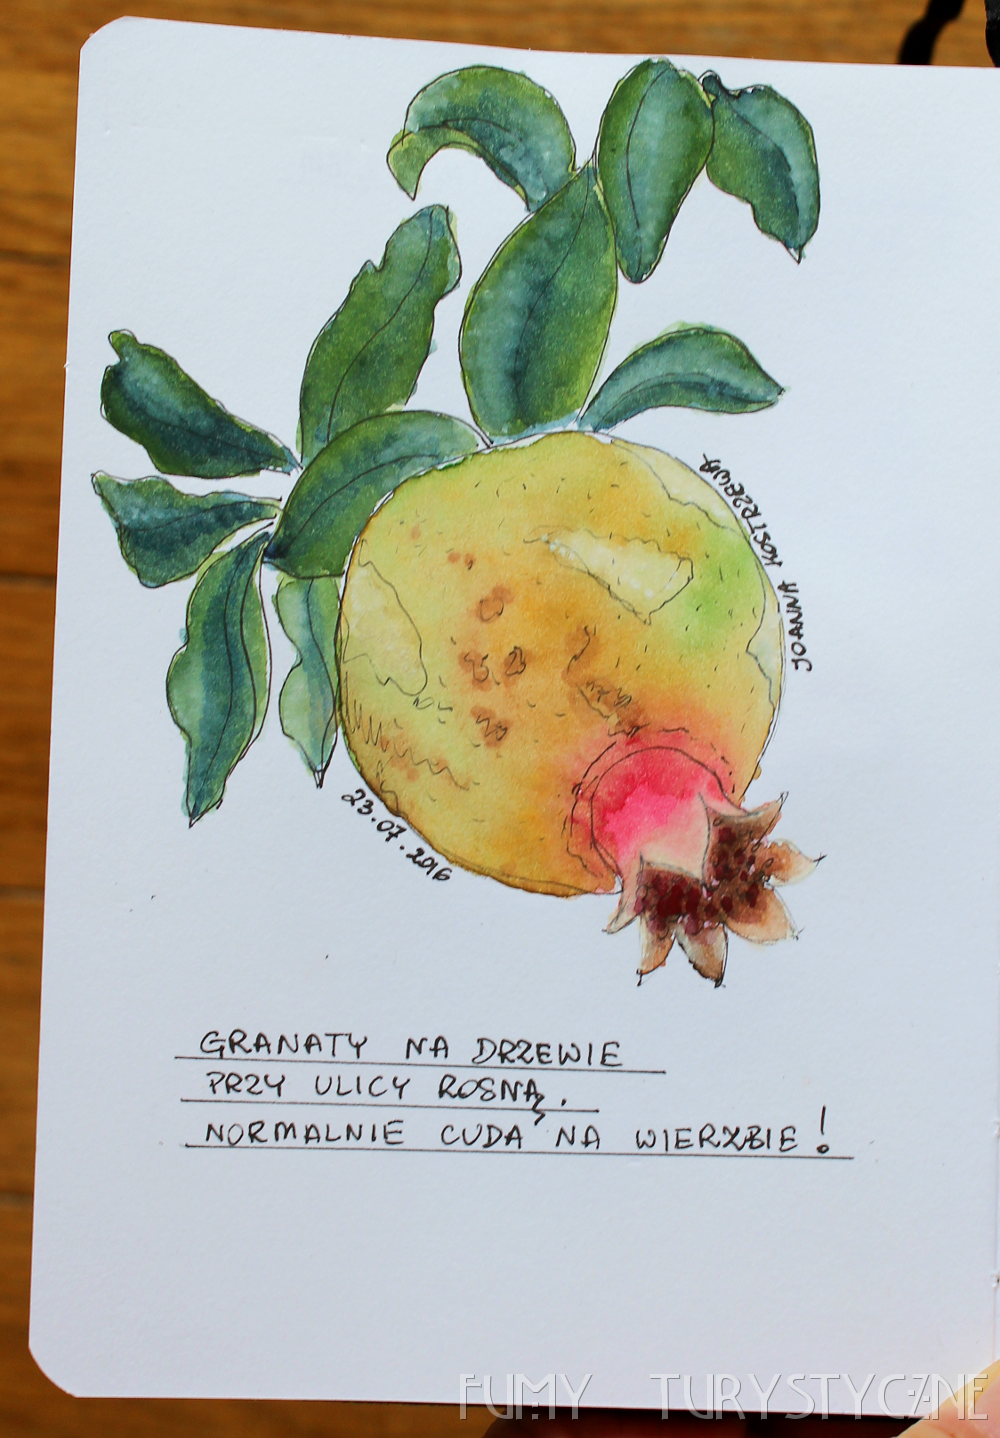 JOANNA KOSTRZEWA
23.07.2016
GRANATY NA DRZEWIE
PRZY ULICY ROSNĄ.
NORMALNIE CUDA NA WIERZBIE!
FUMY TURYSTYCZNE